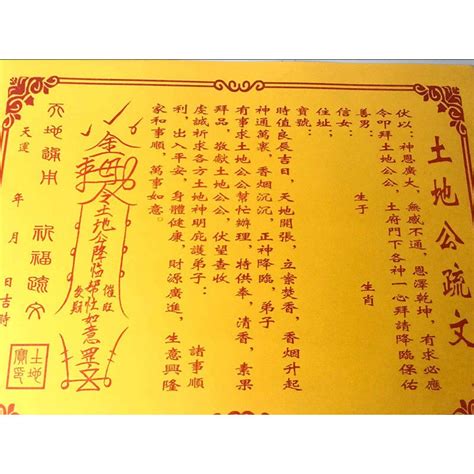 土地公疏文
伏以：神恩廣大，無感不通，恩澤乾坤，有求必應
令叩拜土地公公，土府門下各神一心拜請降臨保佑
善男：　生于　生肖
信女：
住址：
寶號：
時值良辰吉日，天地開張，立案焚香，香烟升起
神通萬裏，香烟沉沉，正神降臨，弟子
有事求土地公公幫忙辦理，特供奉，清香，素果
拜品，敬獻土地公公，伏望查收
虔誠祈求各方土地神明庇護弟子：　諸事順
利，出入平安，身體健康，財源廣進，生意興隆
家和事順，萬事如意。
金母令土地公降臨幫忙如意罡
催旺
天地通用　祈福疏文
天運　年　月　日吉時
土地寶印